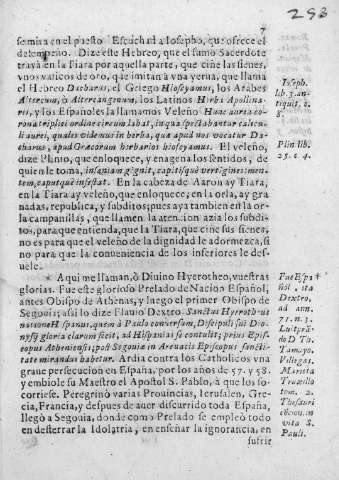 293
7
se mira en el puesto. Escuchad a Iosepho, que ofrece el
desempeño. Dize este Hebreo, que el sumo Sacerdote
traya en la Tiara por aquella parte, que ciñe las sienes,
vnos vasicos de oro, que imitan à vna yerua, que llama
el Hebreo Dacharus, el Griego Hioscyamus, los Arabes
Altercum, ò Altercangenum, los Latinos Herba Apollina-
ris, y los Españoles la llamamos Veleño. Haac aurea co-
rona triplici ordine circum labat, in qua spectabantur calicu-
li aurei, quales videmus in herba, qua apud nos vocatur Da-
charus, apud Græcorum herbarios hioscyamus. El veleño,
dize Plinio, que enloquece, y enagena los sentidos, de
quien le toma, insaniam gignit, capitisque vertigines men-
tem, caputque infestat. En la cabeza de Aaron ay Tiara,
en la Tiara ay veleño, que enloquece, en la orla, ay gra
nadas, republica, y subditos; pues aya tambien en la or
la campanillas, que llamen la atencion azia los subdi-
tos, para que entienda, que la Tiara, que ciñe sus sienes,
no es para que el veleño de la dignidad le adormezca, si
no para que la conveniencia de los inferiores le des-
uele.
Aqui me llaman, ò Diuino Hyrotheo, vuestras
glorias. Fue este glorioso Prelado de Nacion Español,
antes Obispo de Athenas, y luego el primer Obispo de
Segouia; assi lo dize Flauio Dextro: Sanctus Hyerothæus
natione Hispanus, quem à Paulo conversum, Discipuli sui Dio-
nysij gloria clarum fecit, ad Hispanias se contulit; prius Epis-
copus Atheniensis; post Segouia in Areuacis Episcopus sancti-
tate mirandus habetur. Ardia contra los Catholicos vna
graue persecucion en España, por los años de 57. y 58.
y embiole su Maestro el Apostol S. Pablo, à que los so-
corriese. Peregrinò varias Prouincias, Ierusalen, Gre-
cia, Francia, y despues de auer discurrido toda España,
llegò a Segouia, donde como Prelado se empleò todo
en desterrar la Idolatria, en enseñar la ignorancia, en
sufrir
Ioseph.
lib. 3. an-
tiquit. c.
8.
Plin. lib.
25. c. 4.
Fue Espa
ñol, ita
Dextro,
ad ann.
71. n. 3.
Luitprã-
do D Th.
Tamayo.
Villegas.
Marieta
Truxillo
tom. 2.
Thesauri
cscion. in
vita S.
Pauli.